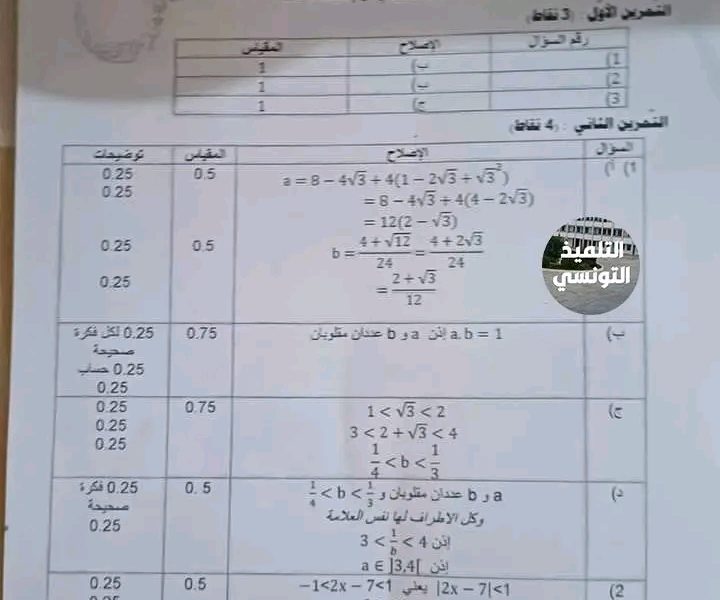 التمرين الأول (3 نقاط)
رقم السؤال الإصلاح المقياس
1) ب) 1
2) ب) 1
3) ج) 1
التمرين الثاني : (4 نقاط)
السؤال الإصلاح المقياس توضيحات
1) أ) a = 8 − 4√3 + 4(1 − 2√3 + √3²) 0.5 0.25
= 8 − 4√3 + 4(4 − 2√3) 0.25
= 12(2 − √3)
b = (4 + √12)/24 = (4 + 2√3)/24 0.5 0.25
= (2 + √3)/12 0.25
التلميذ
التونسي
ب) a.b = 1 إذن a و b عددان مقلوبان 0.75 0.25 لكل فكرة
صحيحة
0.25 حساب
0.25
ج) 1 < √3 < 2 0.75 0.25
3 < 2 + √3 < 4 0.25
1/4 < b < 1/3 0.25
د) a و b عددان مقلوبان و 1/4 < b < 1/3 0.5 0.25 فكرة
وكل الأطراف لها نفس العلامة صحيحة
إذن 3 < 1/b < 4 0.25
إذن a ∈ ]3,4[
2) |2x − 7|<1 يعني −1<2x − 7<1 0.5 0.25